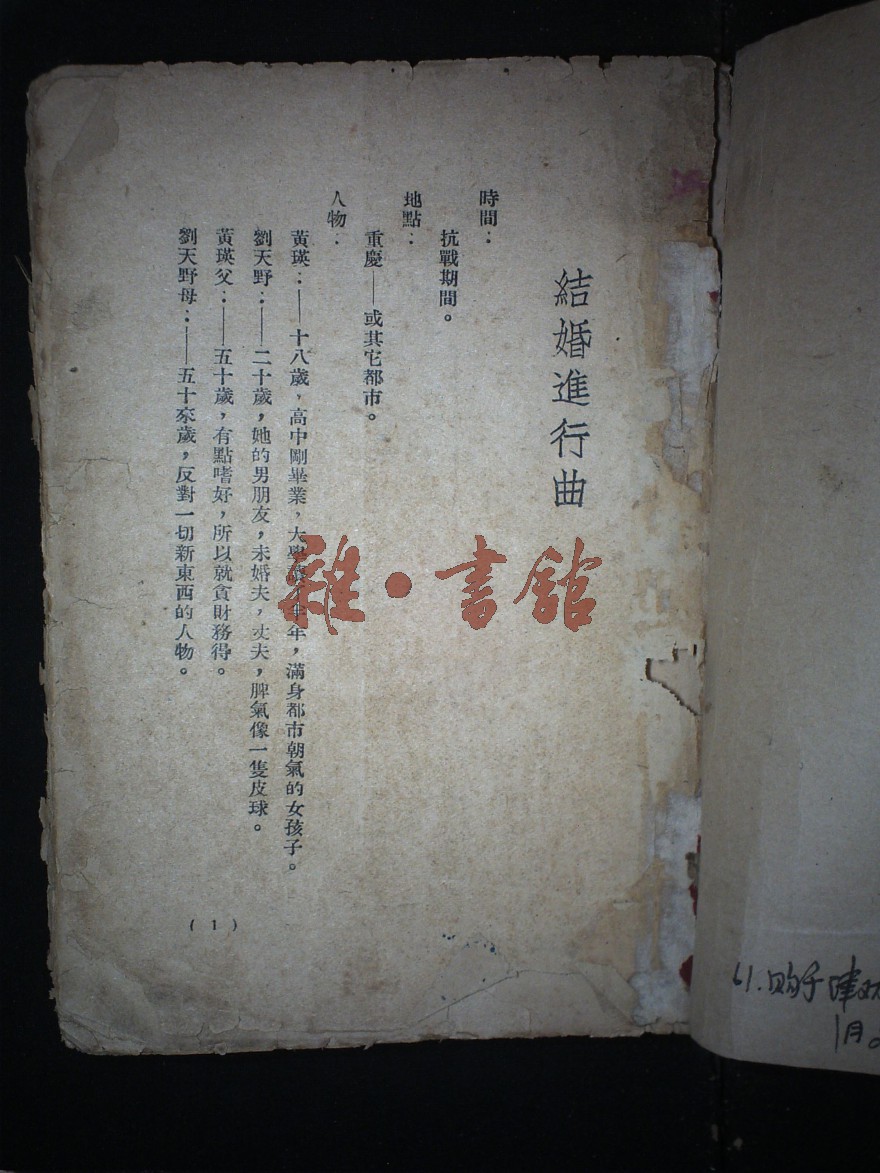 結婚進行曲
時間：
抗戰期間。
地點：
重慶——或其它都市。
人物：
黃瑛：——十八歲，高中剛畢業，大學半年，滿身都市朝氣的女孩子。
劉天野：——二十歲，她的男朋友，未婚夫，丈夫，脾氣像一隻皮球。
黃瑛父：——五十歲，有點嗜好，所以就貪財務得。
劉天野母：——五十來歲，反對一切新東西的人物。
(1)
雜·書舘
61.购于津
1月。